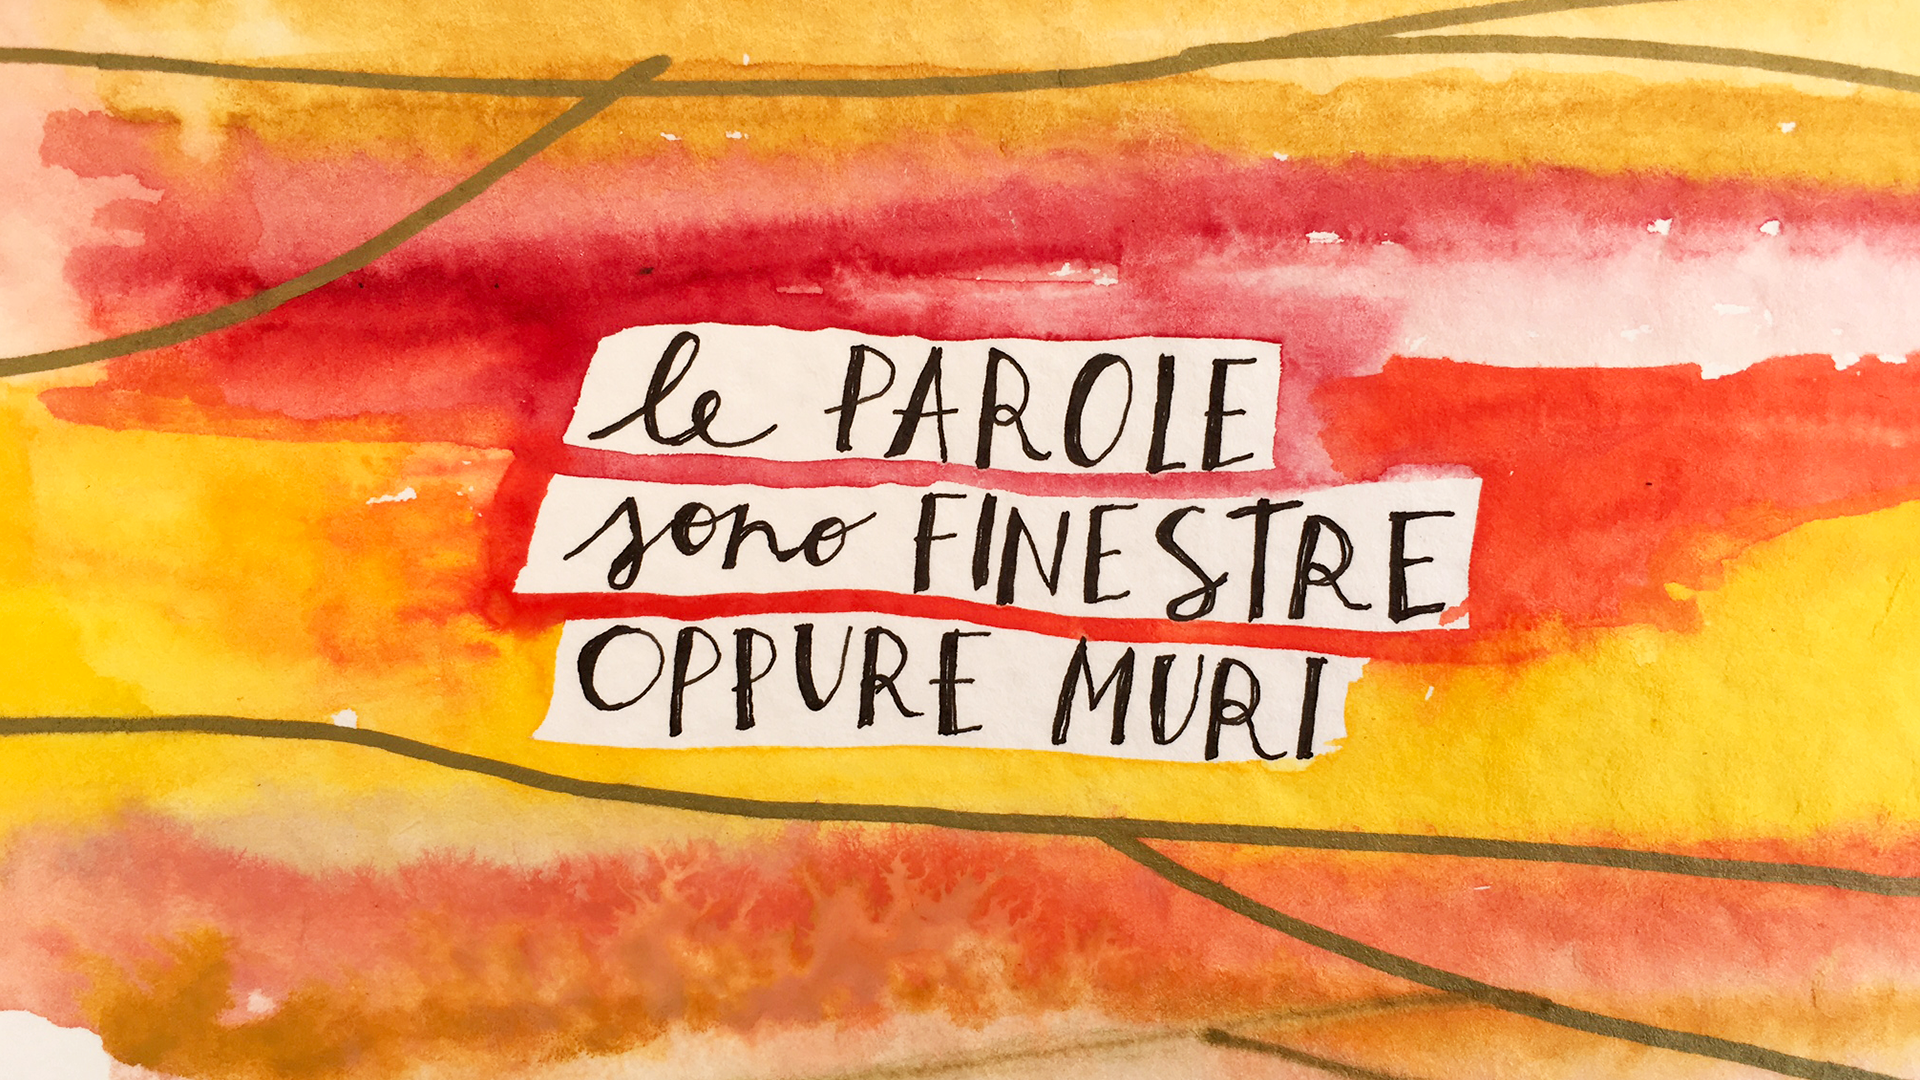 le PAROLE
sono FINESTRE
OPPURE MURI